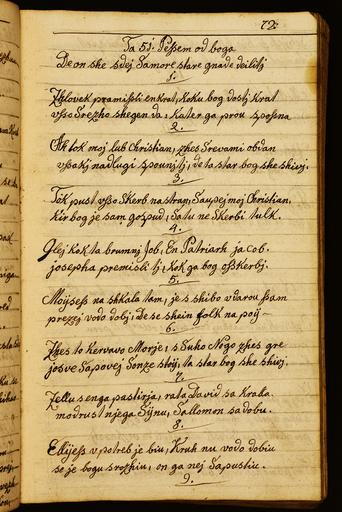 72.
Ta 51. Pessem od boga
De on she sdej Samore stare gnade deilitj
1.
Zhlovek premisli enkrat, koku bog dostj krat
vsso Srezho shegen da: Kater ga prou sposna
2.
Ok tok moj lub Christian, zhes Srevami obdan
vsakj nadlugi spounitj, de ta star bog she shivj.
3.
Tok pust vsso Skerb nastran, Saupej moj Christian,
kir bog je sam gospud, Sa tu ne Skerbi tulk.
4.
Glej kok ta brumnj Job, En Patriarh jacob.
josepha premisk tj, Kok ga bog osskerbj.
5.
Moijsess na shkala tam, je s shibo vdarou ssam
prezej vodo dobj, De se shein folk na poij
6.
Zhes to kervavo Morje, s Suho Nogo zhes gre
josve Sapovej Sonze stoij, ta star bog she shivj.
7.
Is enga pastirja, rata David sa Krala
modrust njega Sijnu, Sallomon sadobu.
8.
Ellijess v potreb je biu, Kruk nu vodo dobiu
se je bogu srozhiu, on ga nej Sapustiu.
9.